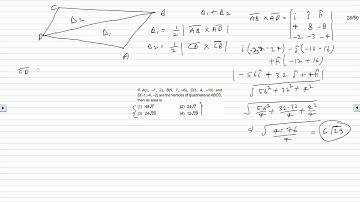 C
B
Δ₂
Δ₁
D
A
Δ₁ + Δ₂
Δ₁ = 1/2 | AB × AD |
Δ₂ = 1/2 | CD × CB |
CD =
AB × AD = | i j k
4 8 -8
-2 -3 -4 |
-j(-16-16)
+k(-12+16)
|-56i + 32j + 4k|
√56² + 32² + 4²
⇒ √4176/4 = 6√29
28/50
If A(1, −1, 2), B(5, 7, −6), C(3, 4, −10) and
D(−1, −4, −2) are the vertices of quadrilateral ABCD,
then its area is
(1) 48√7 (2) 24√7
(3) 24√29 (4) 12√29